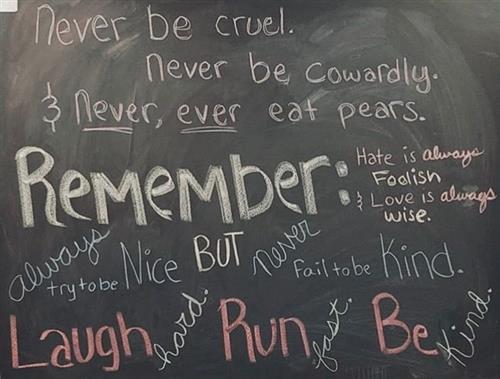 Never be cruel.
never be cowardly.
& Never, ever eat pears.
Remember:
Hate is always
Foolish
& Love is always
wise.
always try to be Nice BUT never Fail to be Kind.
Laugh hard. Run fast. Be Kind.